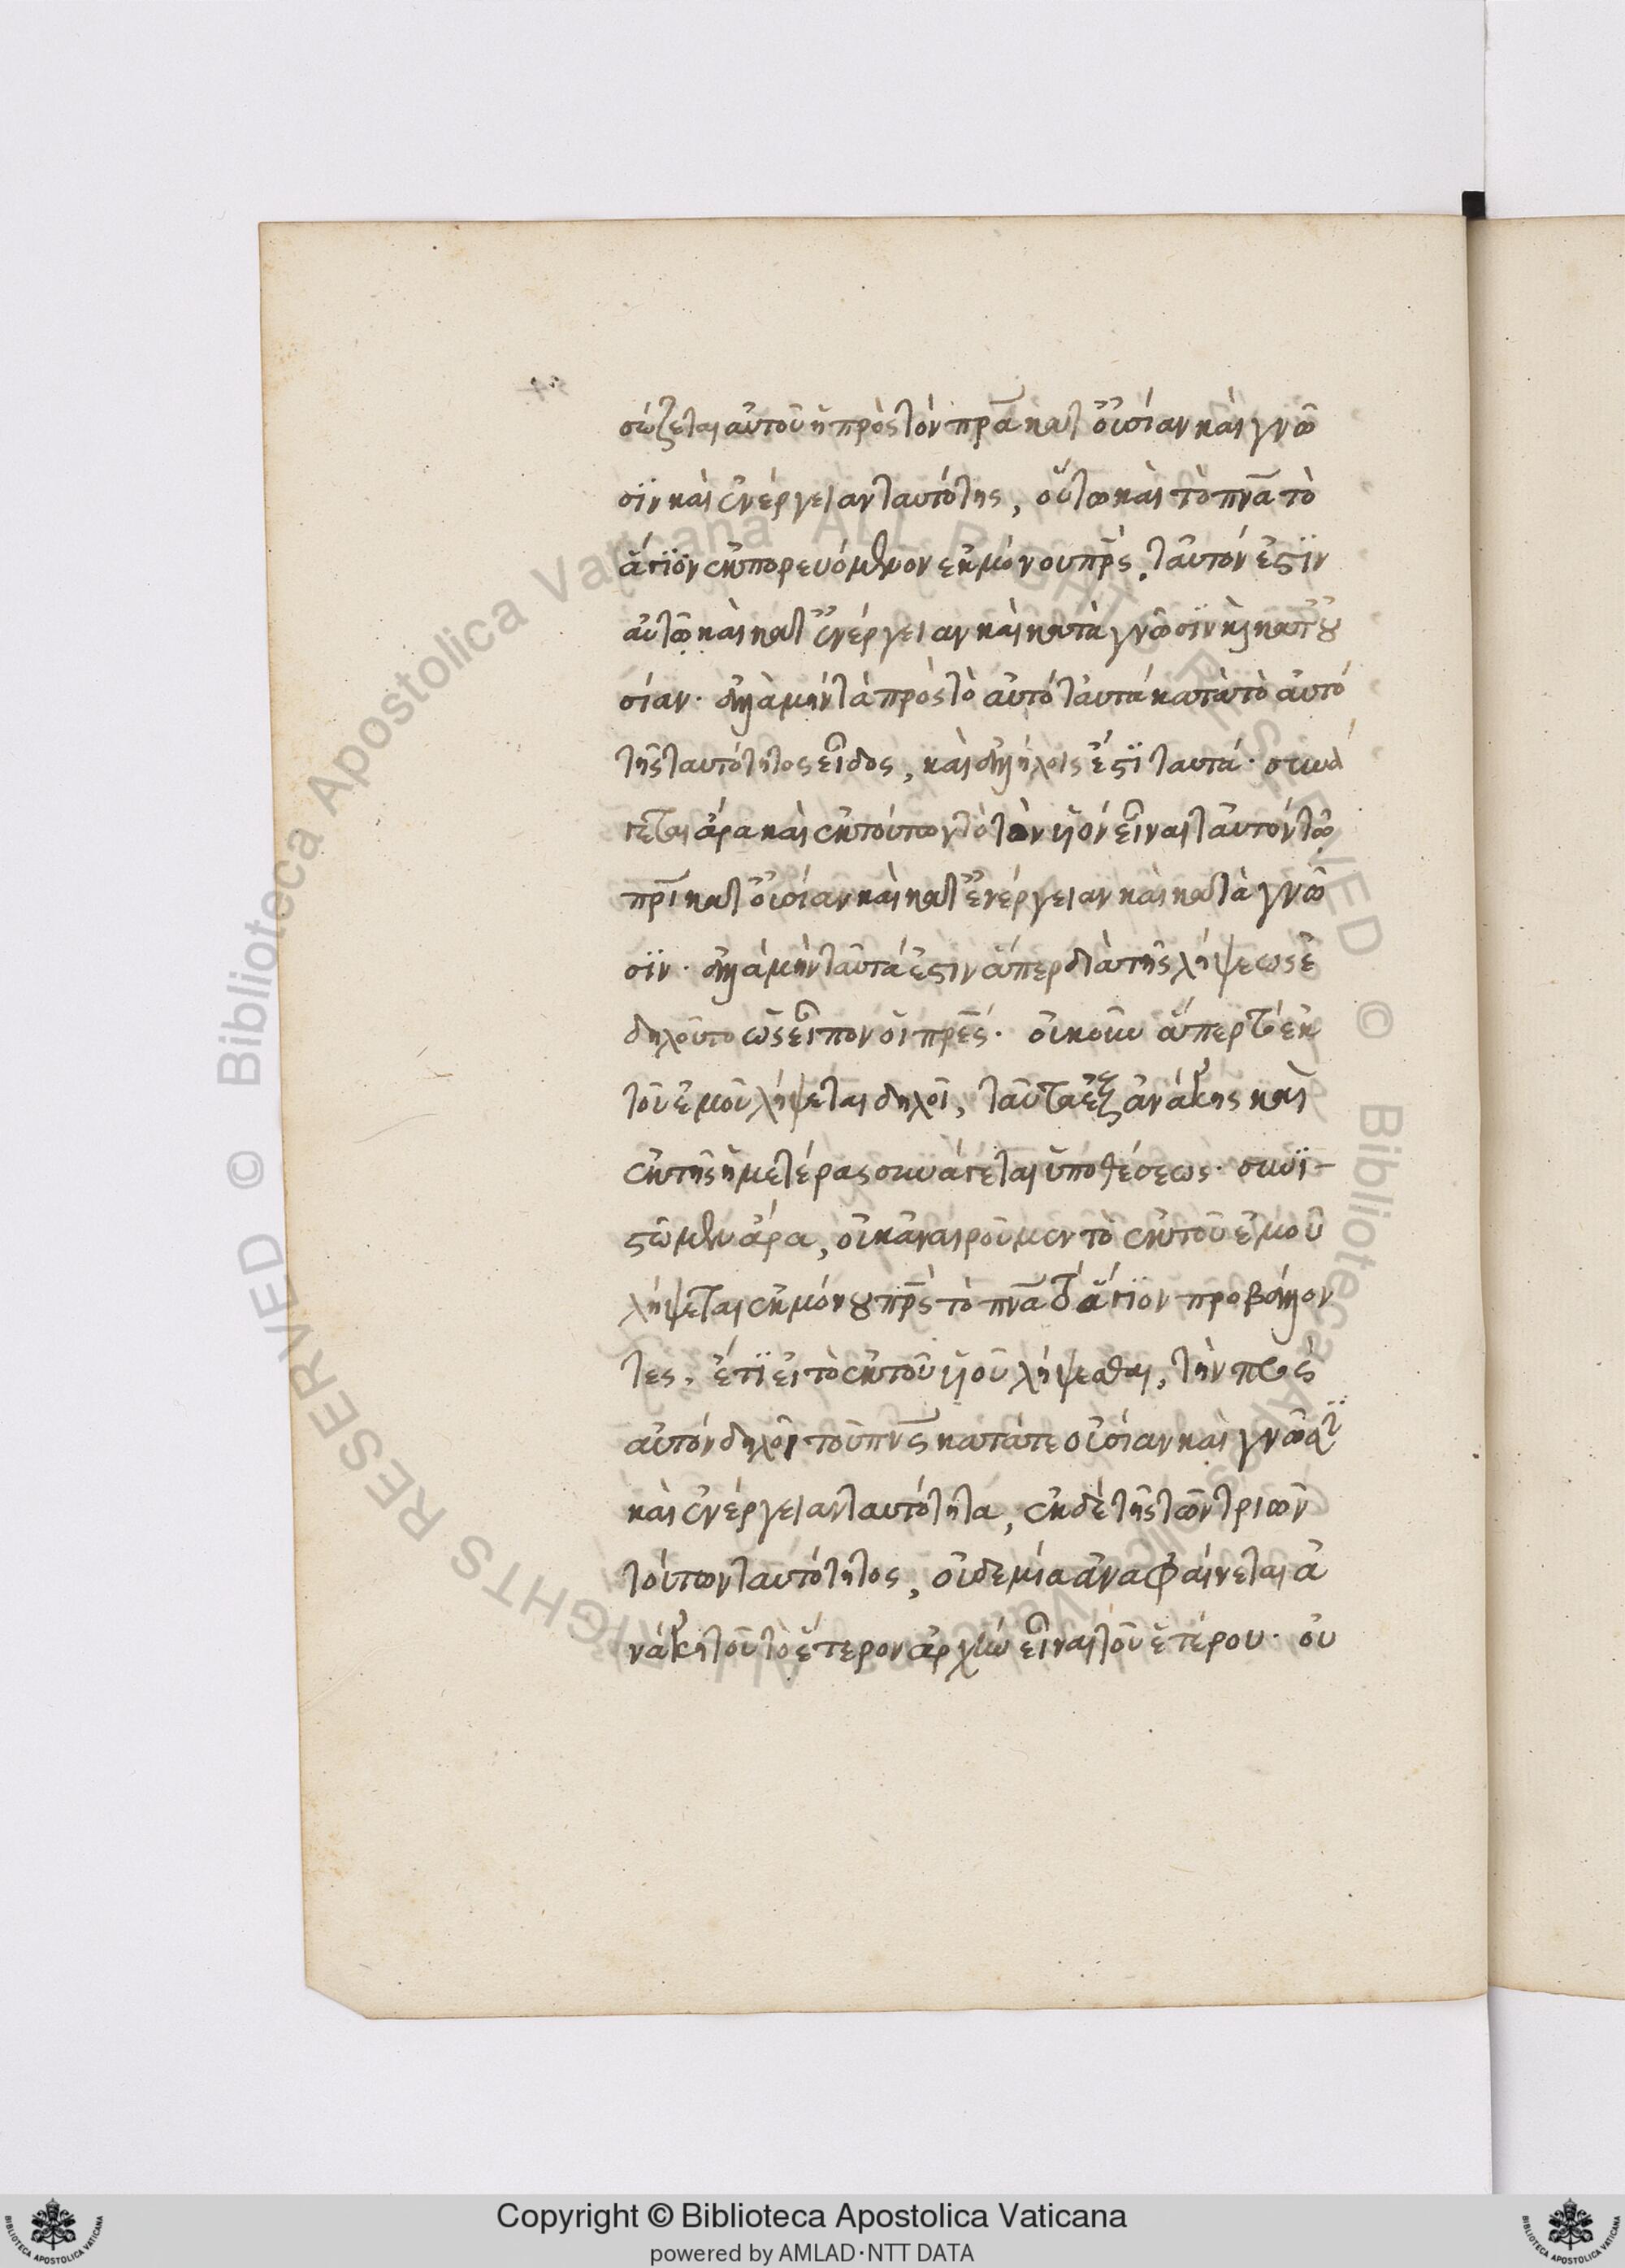 σώζεται αὐτοῦ ἡ πρὸς τὸν πρᾶ κατ οὐσίαν καὶ γνῶ
σϊν καὶ ἐνέργειαν ταυτότης, οὕτω καὶ τὸ πνᾶ τὸ
ἅγϊον ἐκπορευόμενον ἐκ μόνου πρς, ταὐτόν ἐστϊν
αὐτῷ καὶ κατ ἐνέργειαν καὶ κατὰ γνῶσϊν καὶ κατ οὐ
σίαν· ἀλλὰ μὴν τὰ πρὸς τὸ αὐτό ταὐτά κατὰ τὸ αὐτό
τῆς ταυτότητος εἶδος, καὶ ἀλλήλοις ἐστϊ ταυτά· συνά
γεται ἄρα καὶ ἐκ τούτων τὸ τὸν ϋἱόν εἶναι ταὐτόν τῷ
πρϊ κατ οὐσίαν καὶ κατ ἐνέργειαν καὶ κατὰ γνῶ
σϊν· ἀλλὰ μὴν ταῦτά ἐστιν ἅπερ διὰ τῆς λήψεως ἐ
δηλοῦτο ὡς εἶπον οἱ πρες· οὐκοῦν ἅπερ τὸ ἐκ
τοῦ ἐμοῦ λήψεται δηλοῖ, ταῦτα ἐξ ἀνάγκης καὶ
ἐκ τῆς ἡμετέρας συνάγεται ὑποθέσεως· συνϊ-
στῶμεν ἄρα, οὐκ ἀναιροῦμεν τὸ ἐκ τοῦ ἐμοῦ
λήψεται ἐκ μόνου πρς τὸ πνᾶ τὸ ἅγϊον προβάλλον
τες. ἔτϊ εἰ τὸ ἐκ τοῦ ϋἱοῦ λήψεσθαι, τὴν πρὸς
αὐτόν δηλοῖ τοῦ πνς κατά τε οὐσίαν καὶ γνῶσϊν
καὶ ἐνέργειαν ταυτότητα, ἐκ δὲ τῆς τῶν τριῶν
τούτων ταυτότητος, οὐδεμία ἀναφαίνεται ἀ
νάγκη τοῦ τὸ ἕτερον ἀρχὴν εἶναι τοῦ ἑτέρου· οὐ
Copyright © Biblioteca Apostolica Vaticana
powered by AMLAD·NTT DATA